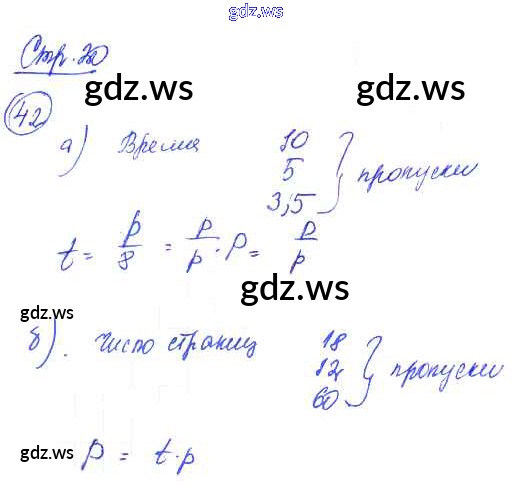 gdz.ws
Стр. 20
gdz.ws gdz.ws
42
а) Время 10
5
3,5 } пропуски
t = p/8 = p/p · p = p/p
gdz.ws
gdz.ws
б). Число страниц 18
12
60 } пропуски
p = t·p
gdz.ws gdz.ws